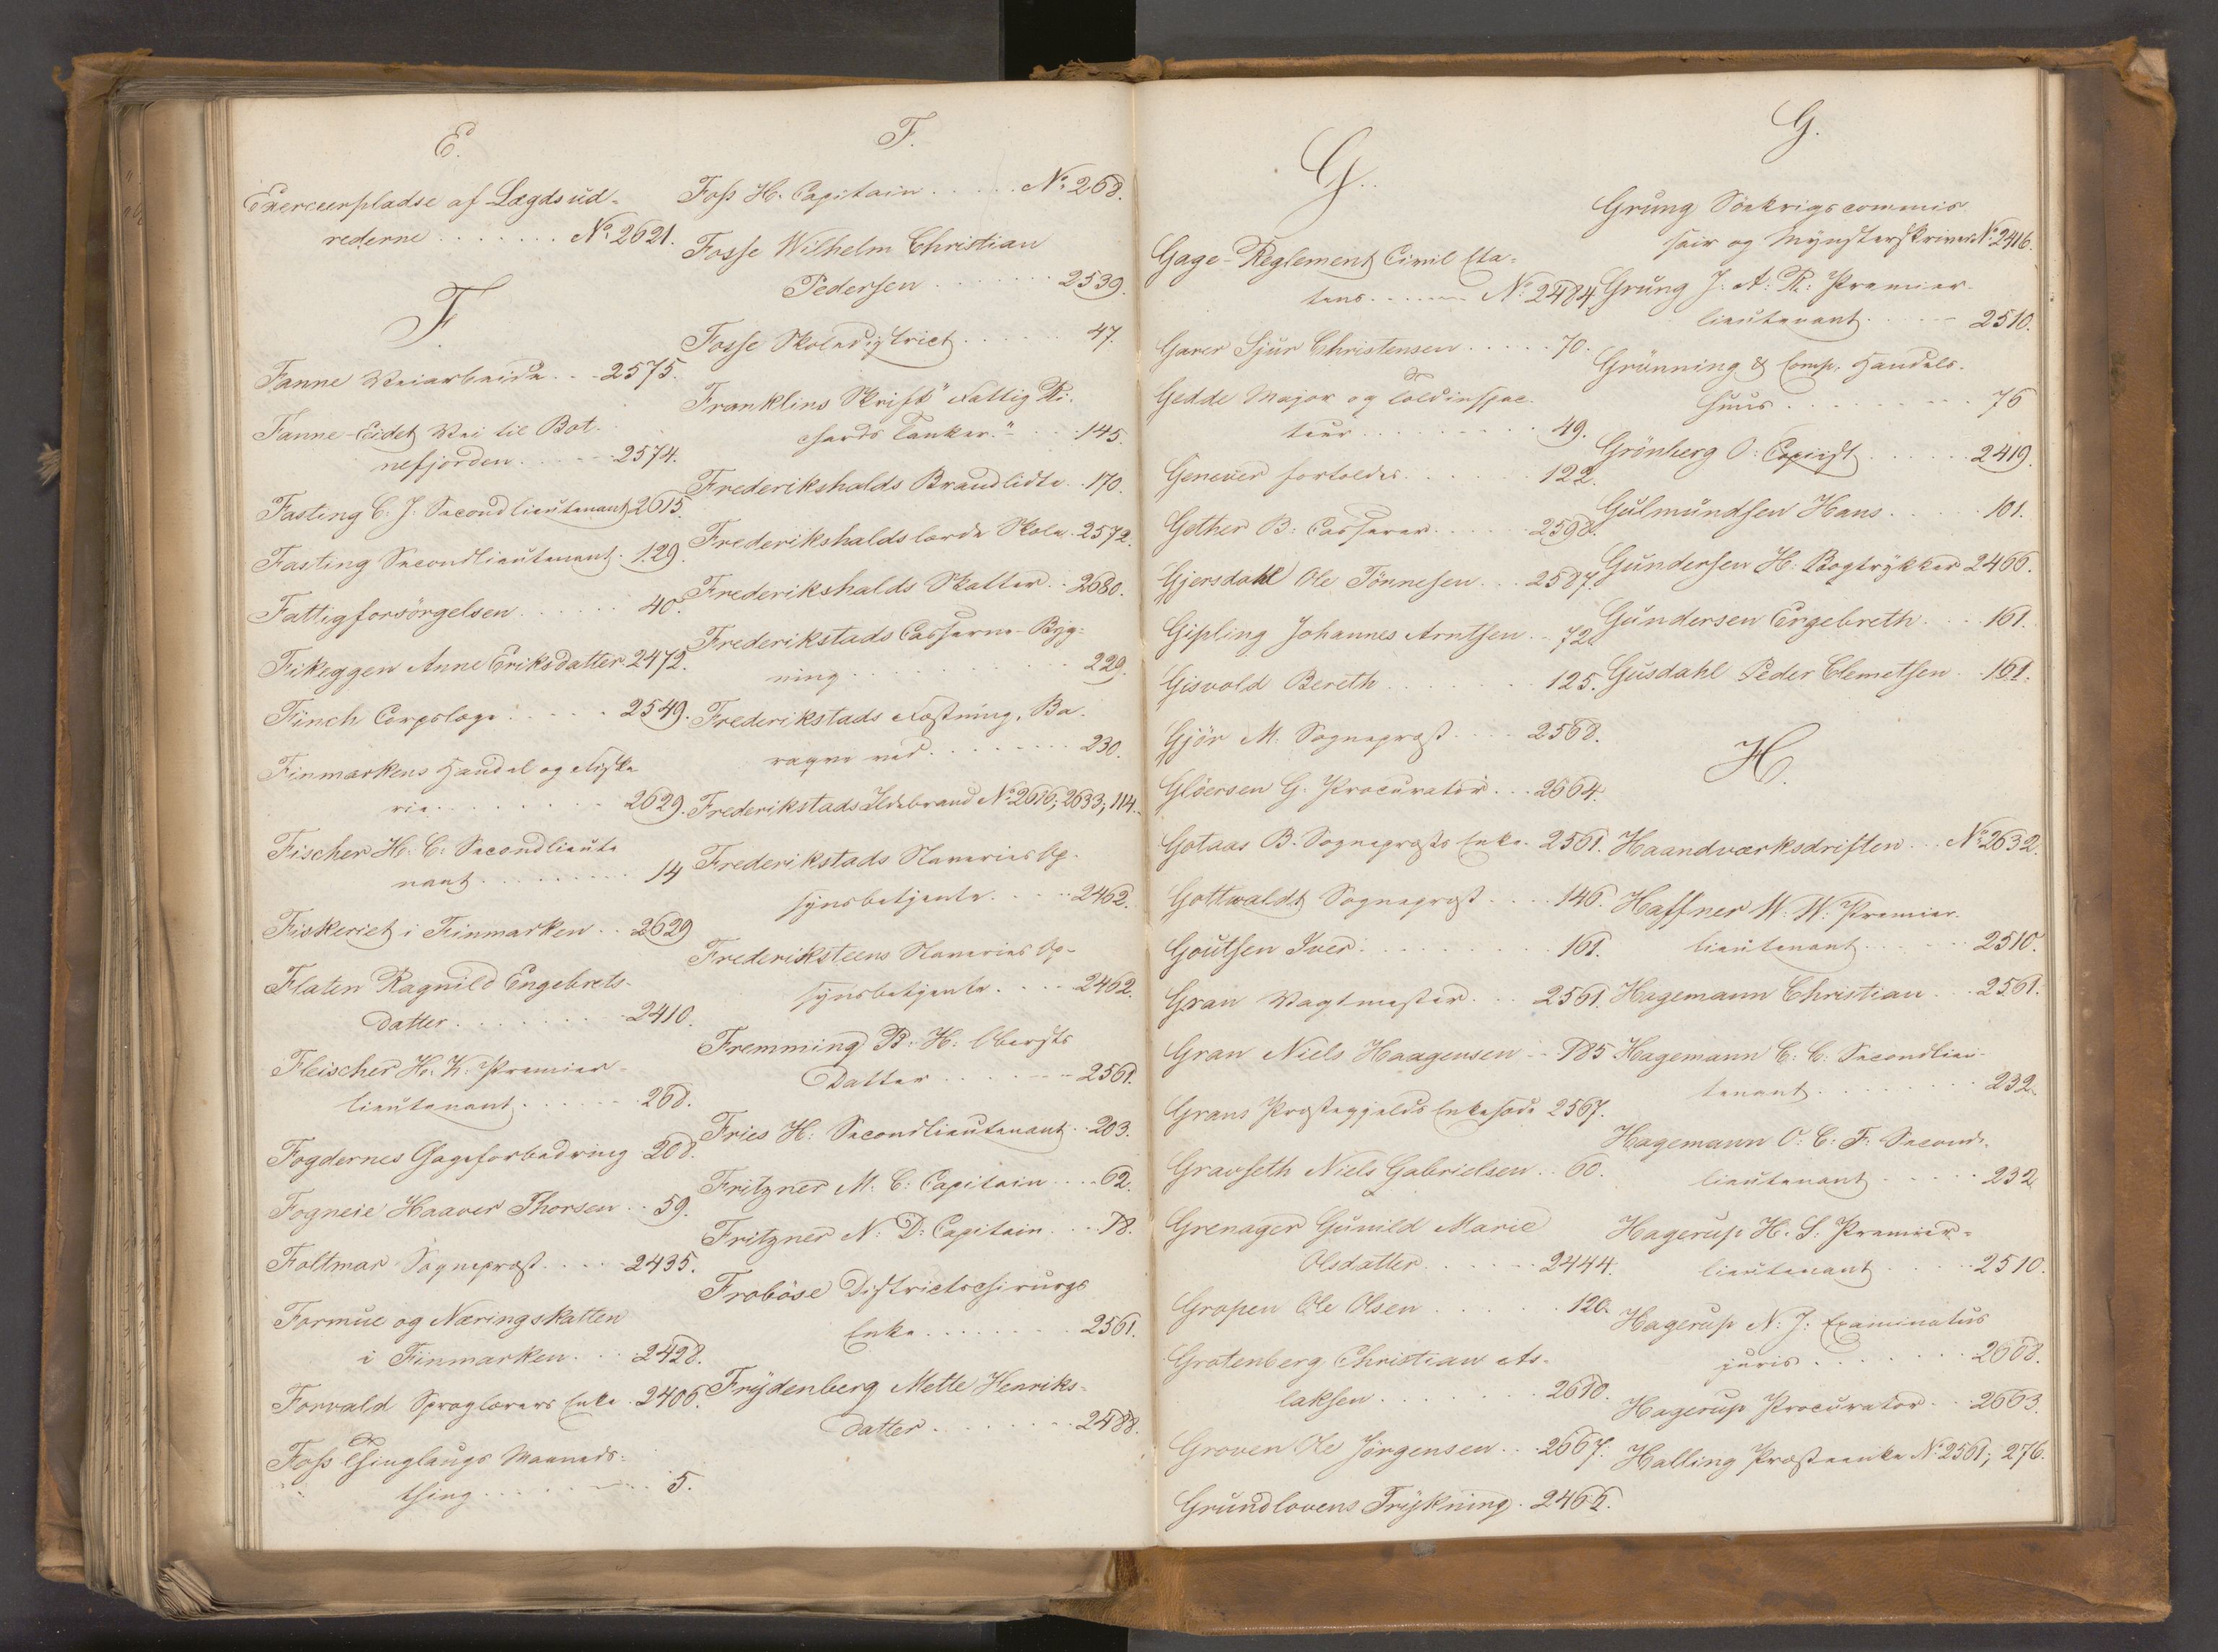 E.
Exerceerpladse af Lægdsud-
rederne . . . . . . . No 2621.
F.
Fanne Veiarbeide . . . 2575.
Fanne-Eidet Vei til Bot-
nefjorden . . . . . . 2574.
Fasting C. J. Secondlieutenant 2615.
Fasting Secondlieutenant . 129.
Fattigforsörgelsen . . . . . . 40.
Fikeggen Anne Eriksdatter 2472.
Finch Corpslæge . . . . . 2549.
Finmarkens Handel og Fiske
rie . . . . . . . . . 2629.
Fischer H. C. Secondlieute
nant . . . . . . . . . 14
Fiskeriet i Finmarken . . 2629
Flaten Ragnild Engebrets-
datter . . . . . . . . 2410.
Fleischer H. K. Premier-
lieutenant . . . . . . . 268.
Fogdernes Gageforbedring 208.
Fogneie Haaver Thorsen . . 59.
Foltmar Sognepræst . . . . . 2435.
Formue og Næringskatten
i Finmarken . . . 2428.
Forvald Sproglærers Enke . 2406.
Foss Thinglaugs Maaneds-
thing . . . . . . . . . 5.
F.
Foss H. Capitain . . . . . No 268.
Fosse Wilhelm Christian
Pedersen . . . . . . . 2539.
Fosse Skoledistrict . . . . . . 47.
Franklins Skrift "Fattig Ri-
chards Tanker." . . . 145.
Frederikshalds Brandlidte . . 170.
Frederikshalds lærde Skole . 2572.
Frederikshalds Skatter . . 2680.
Frederikstads Casserne-Byg-
ning . . . . . . . . . . 229.
Frederikstads Fæstning, Ba-
raqve ved . . . . . . . . 230.
Frederikstads Ildebrand No 2616; 2633; 114.
Frederikstads Slaveries Op-
synsbetjente . . . . 2462.
Frederiksteens Slaveries Op-
synsbetjente . . . . 2462.
Fremming B. H. Obersts
Datter . . . . . . . 2561.
Fries H. Secondlieutenant . . 203.
Fritzner M. C. Capitain . . . . 62.
Fritzner N. D. Capitain . . . 78.
Froböse Districtschirurgs
Enke . . . . . . . . 2561.
Frÿdenberg Mette Henriks-
datter . . . . . . . . 2488.
G.
Gage-Reglement Civil Eta-
tens . . . . . . No 2484
Garer Sjur Christensen . . . . . 70.
Gedde Major og Toldinspec-
teur . . . . . . . . . 49.
Genever fortoldes . . . . . . 122.
Gether B. Casserer . . . . . 2598.
Gjersdahl Ole Tönnesen . . . 2587.
Gipling Johannes Arntsen . . 72.
Gisvold Bereth . . . . . . . . 125.
Gjör M. Sognepræst . . . . 2568.
Glöersen G. Procurator . . . 2664.
Gotaas B. Sognepræsts Enke . 2561.
Gottwaldt Sognepræst . . . . 146.
Goutsen Iver . . . . . . . . . . 161.
Gran Vagtmester . . . 2561.
Gran Niels Haagensen . . . 185
Grans Præstegjelds Enkesæde 2567.
Gravseth Niels Gabrielsen . . 60.
Grenager Gunild Marie
Olsdatter . . . . . . 2444.
Gropen Ole Olsen . . . . . . 120.
Grotenberg Christian As-
laksen . . . . . . . . 2610.
Groven Ole Jörgensen . . . 2667.
Grundlovens Trÿkning . 2466.
G.
Grung Söekrigscommis
sair og Mynsterskriver No 2416.
Grung J. A. R. Premier-
lieutenant . . . . . 2510.
Grünning & Comp. Handels-
huus . . . . . . . . . . 76
Grönberg O. Copiist . . . . . . 2419.
Gulmundsen Hans . . . . . 101.
Gundersen H. Bogtrykker 2466.
Gundersen Engebreth . . . . 161.
Gusdahl Peder Clemetsen . . 161.
H.
Haandværksdriften . . . No 2632.
Haffner W. W. Premier-
lieutenant . . . . . . 2510.
Hagemann Christian . . . 2561.
Hagemann C. C. Secondlieu-
tenant . . . . . . . . . 232.
Hagemann O. C. F. Second-
lieutenant . . . . . . 232
Hagerup H. S. Premier-
lieutenant . . . . . 2510.
Hagerup N. J. Examinatus
juris . . . . . . . . 2608.
Hagerup Procurator . . . 2663.
Halling Præsteenke No 2561; 276.